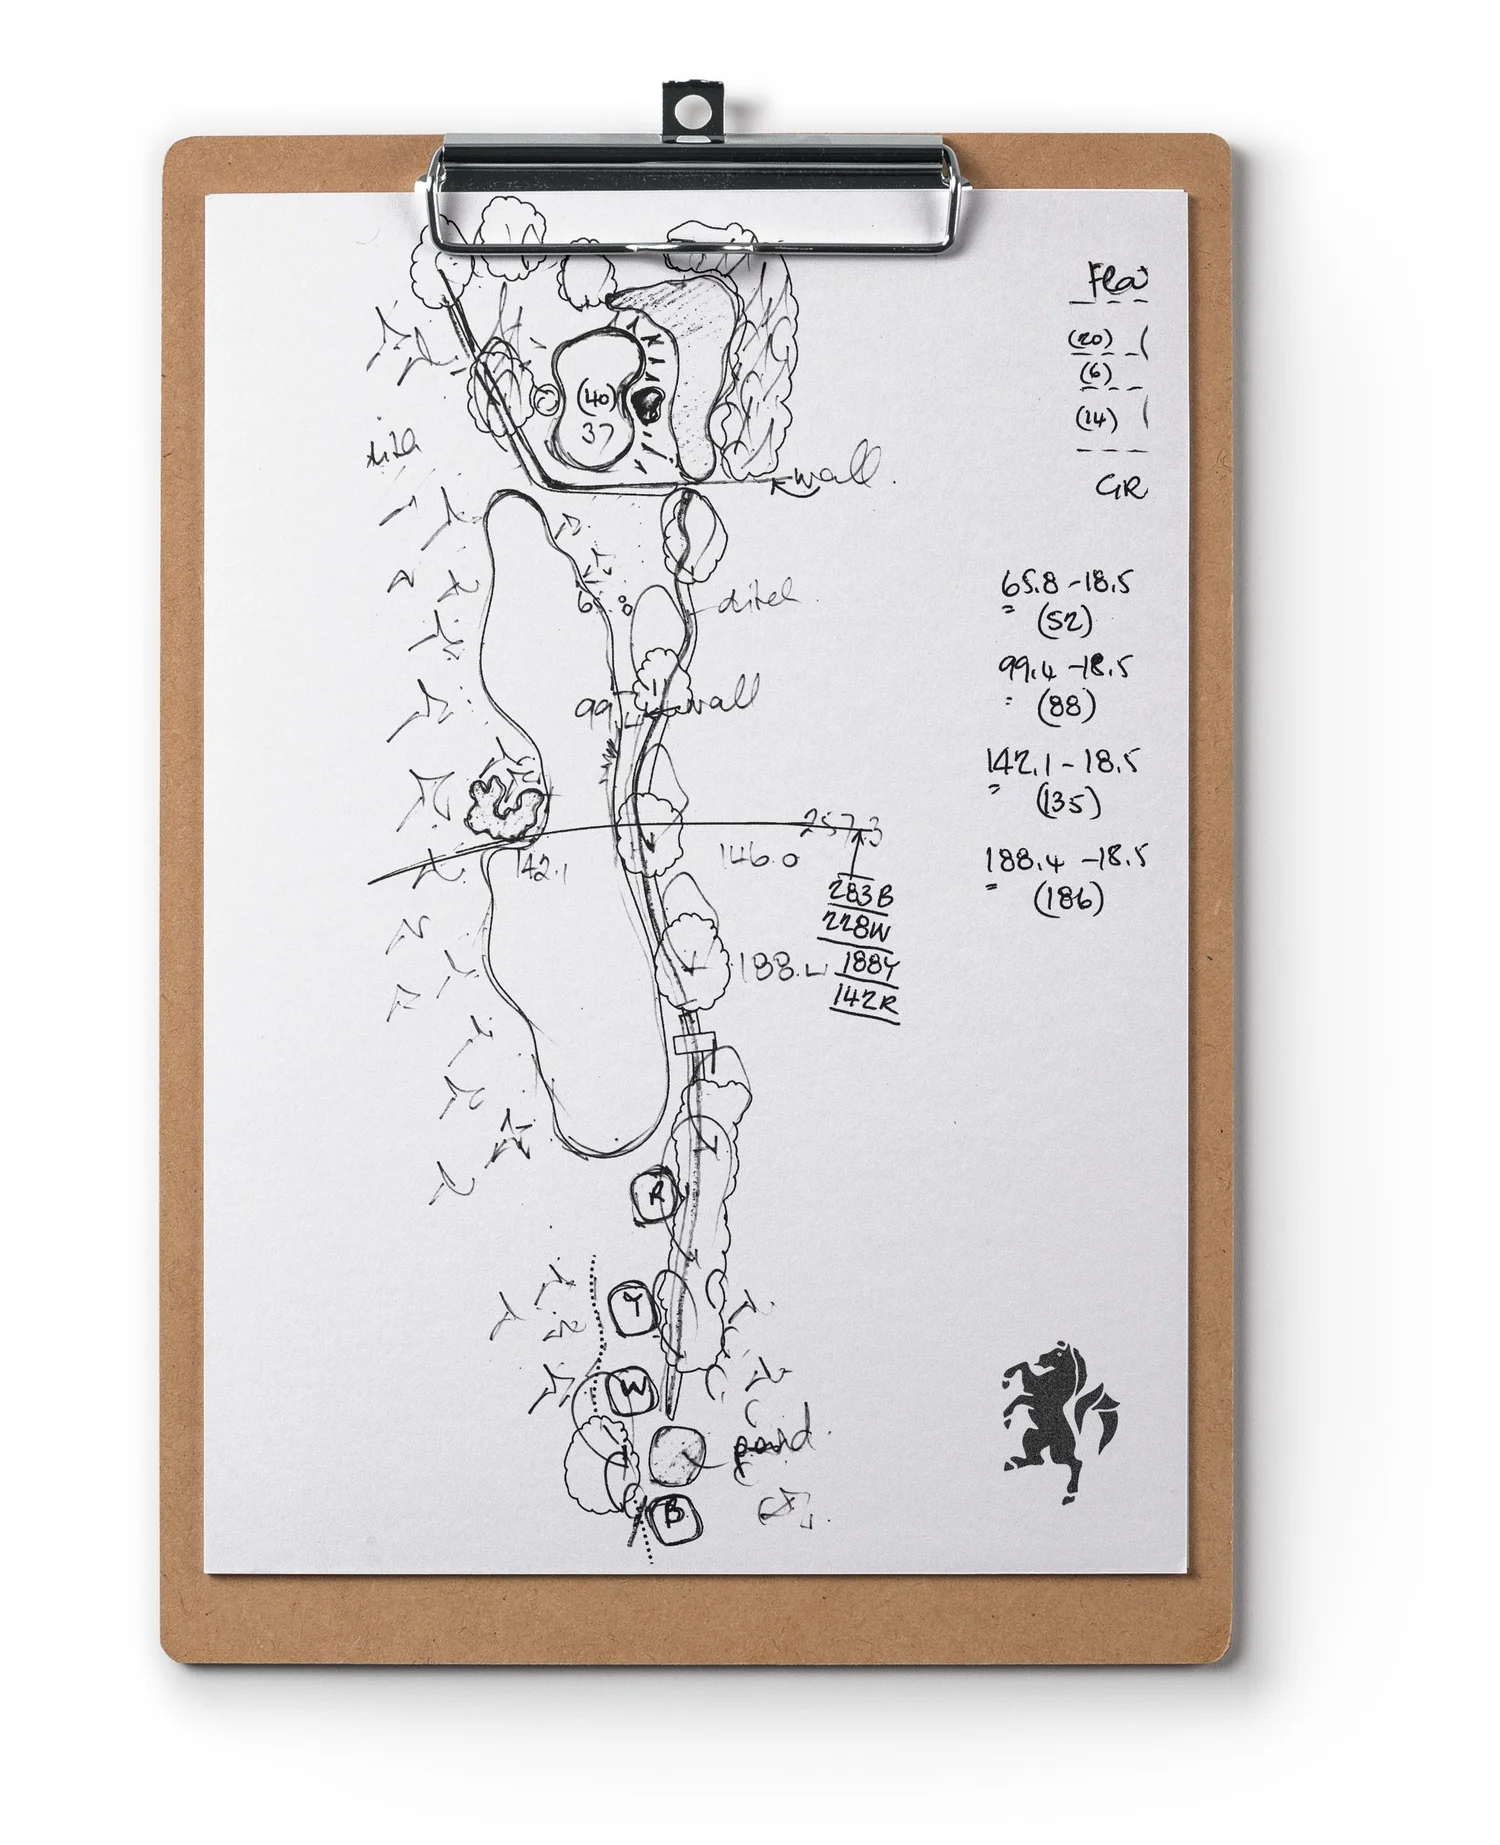 (20)
(6)
(40)
37
(14)
wall.
GR
65.8 - 18.5
= (52)
99.4 - 18.5
wall
= (88)
142.1 - 18.5
= (135)
257.3
142.1
146.0
188.4 - 18.5
283B
= (186)
228W
188.4
188Y
142R
R
Y
W
pond.
B